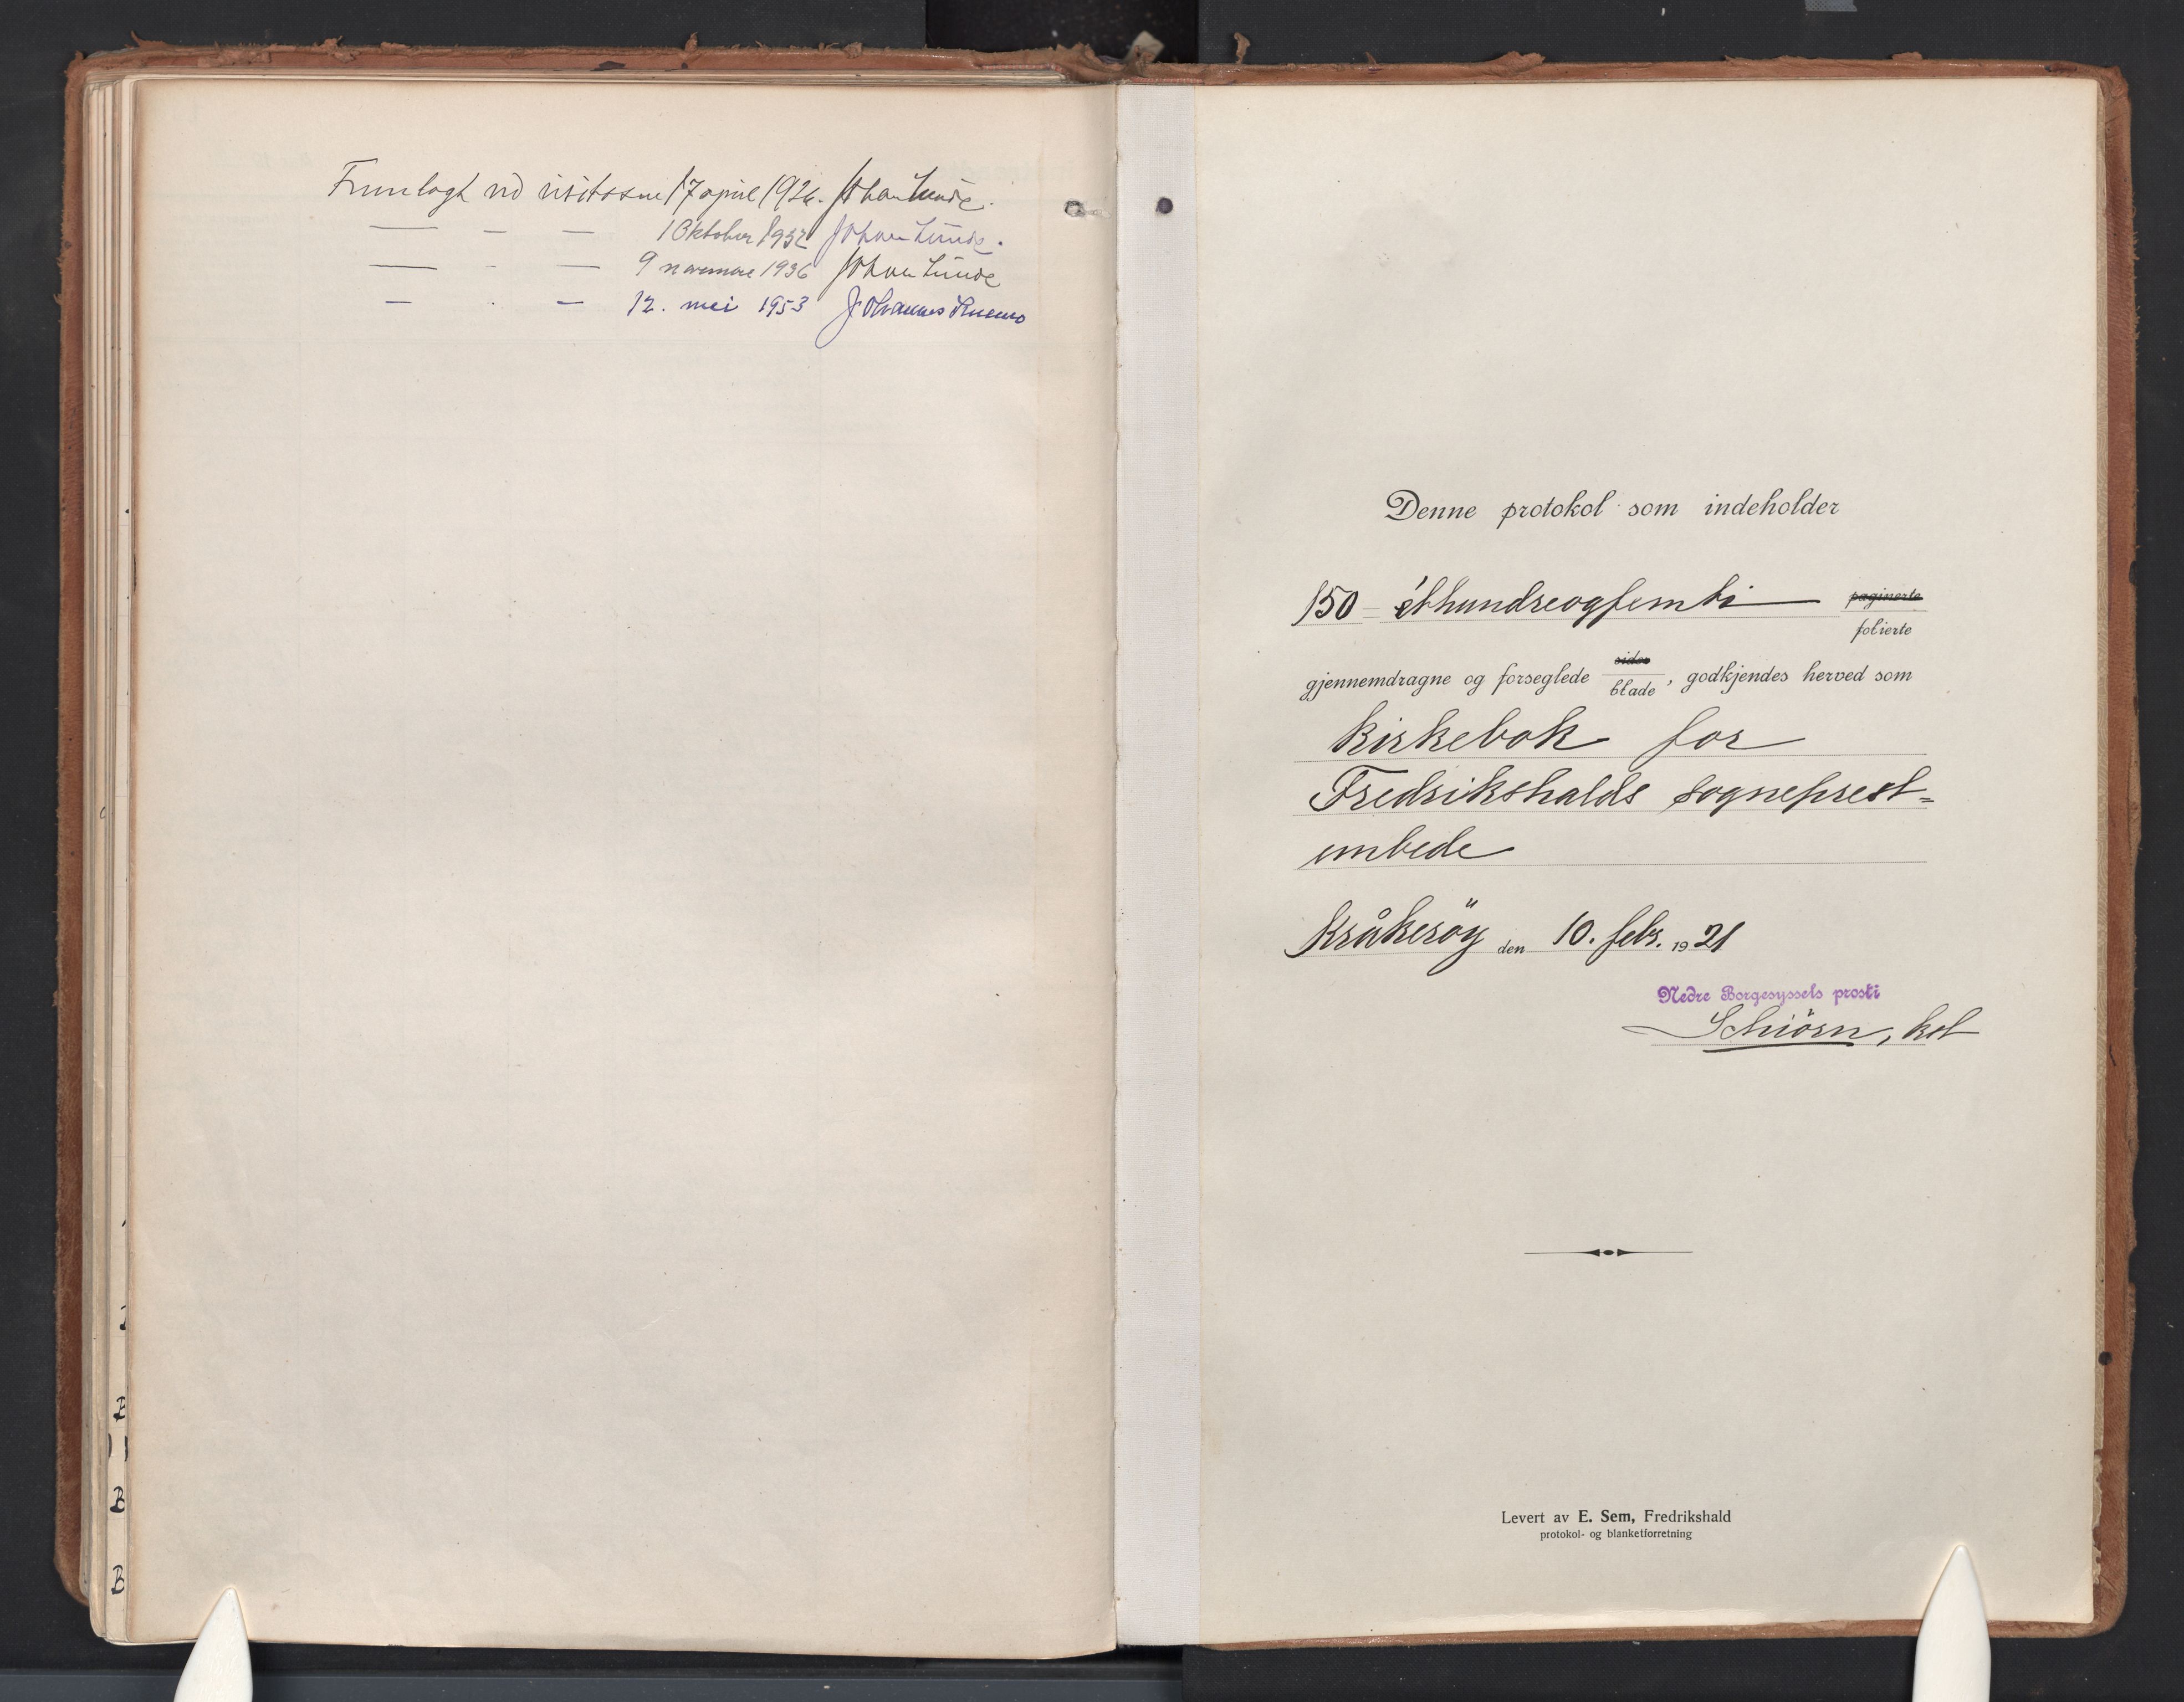 Fremlagt ved visitasen 17 april 1926. Johan Lunde.
— - — 1 Oktober 1932 Johan Lunde.
— - — 9 november 1936 Johan Lunde
— . — 12. mai 1953 Johannes
Denne protokol som indeholder
150 - étthundreogfemti — paginerte
folierte
sider
gjennemdragne og forseglede blade, godkjendes herved som
kirkebok for
Fredrikshalds sogneprest=
embede
Kråkeröy den 10. febr. 1921
Nedre Borgesyssels prosti
Schiörn, kst
Levert av E. Sem, Fredrikshald
protokol- og blanketforretning
B
B
B